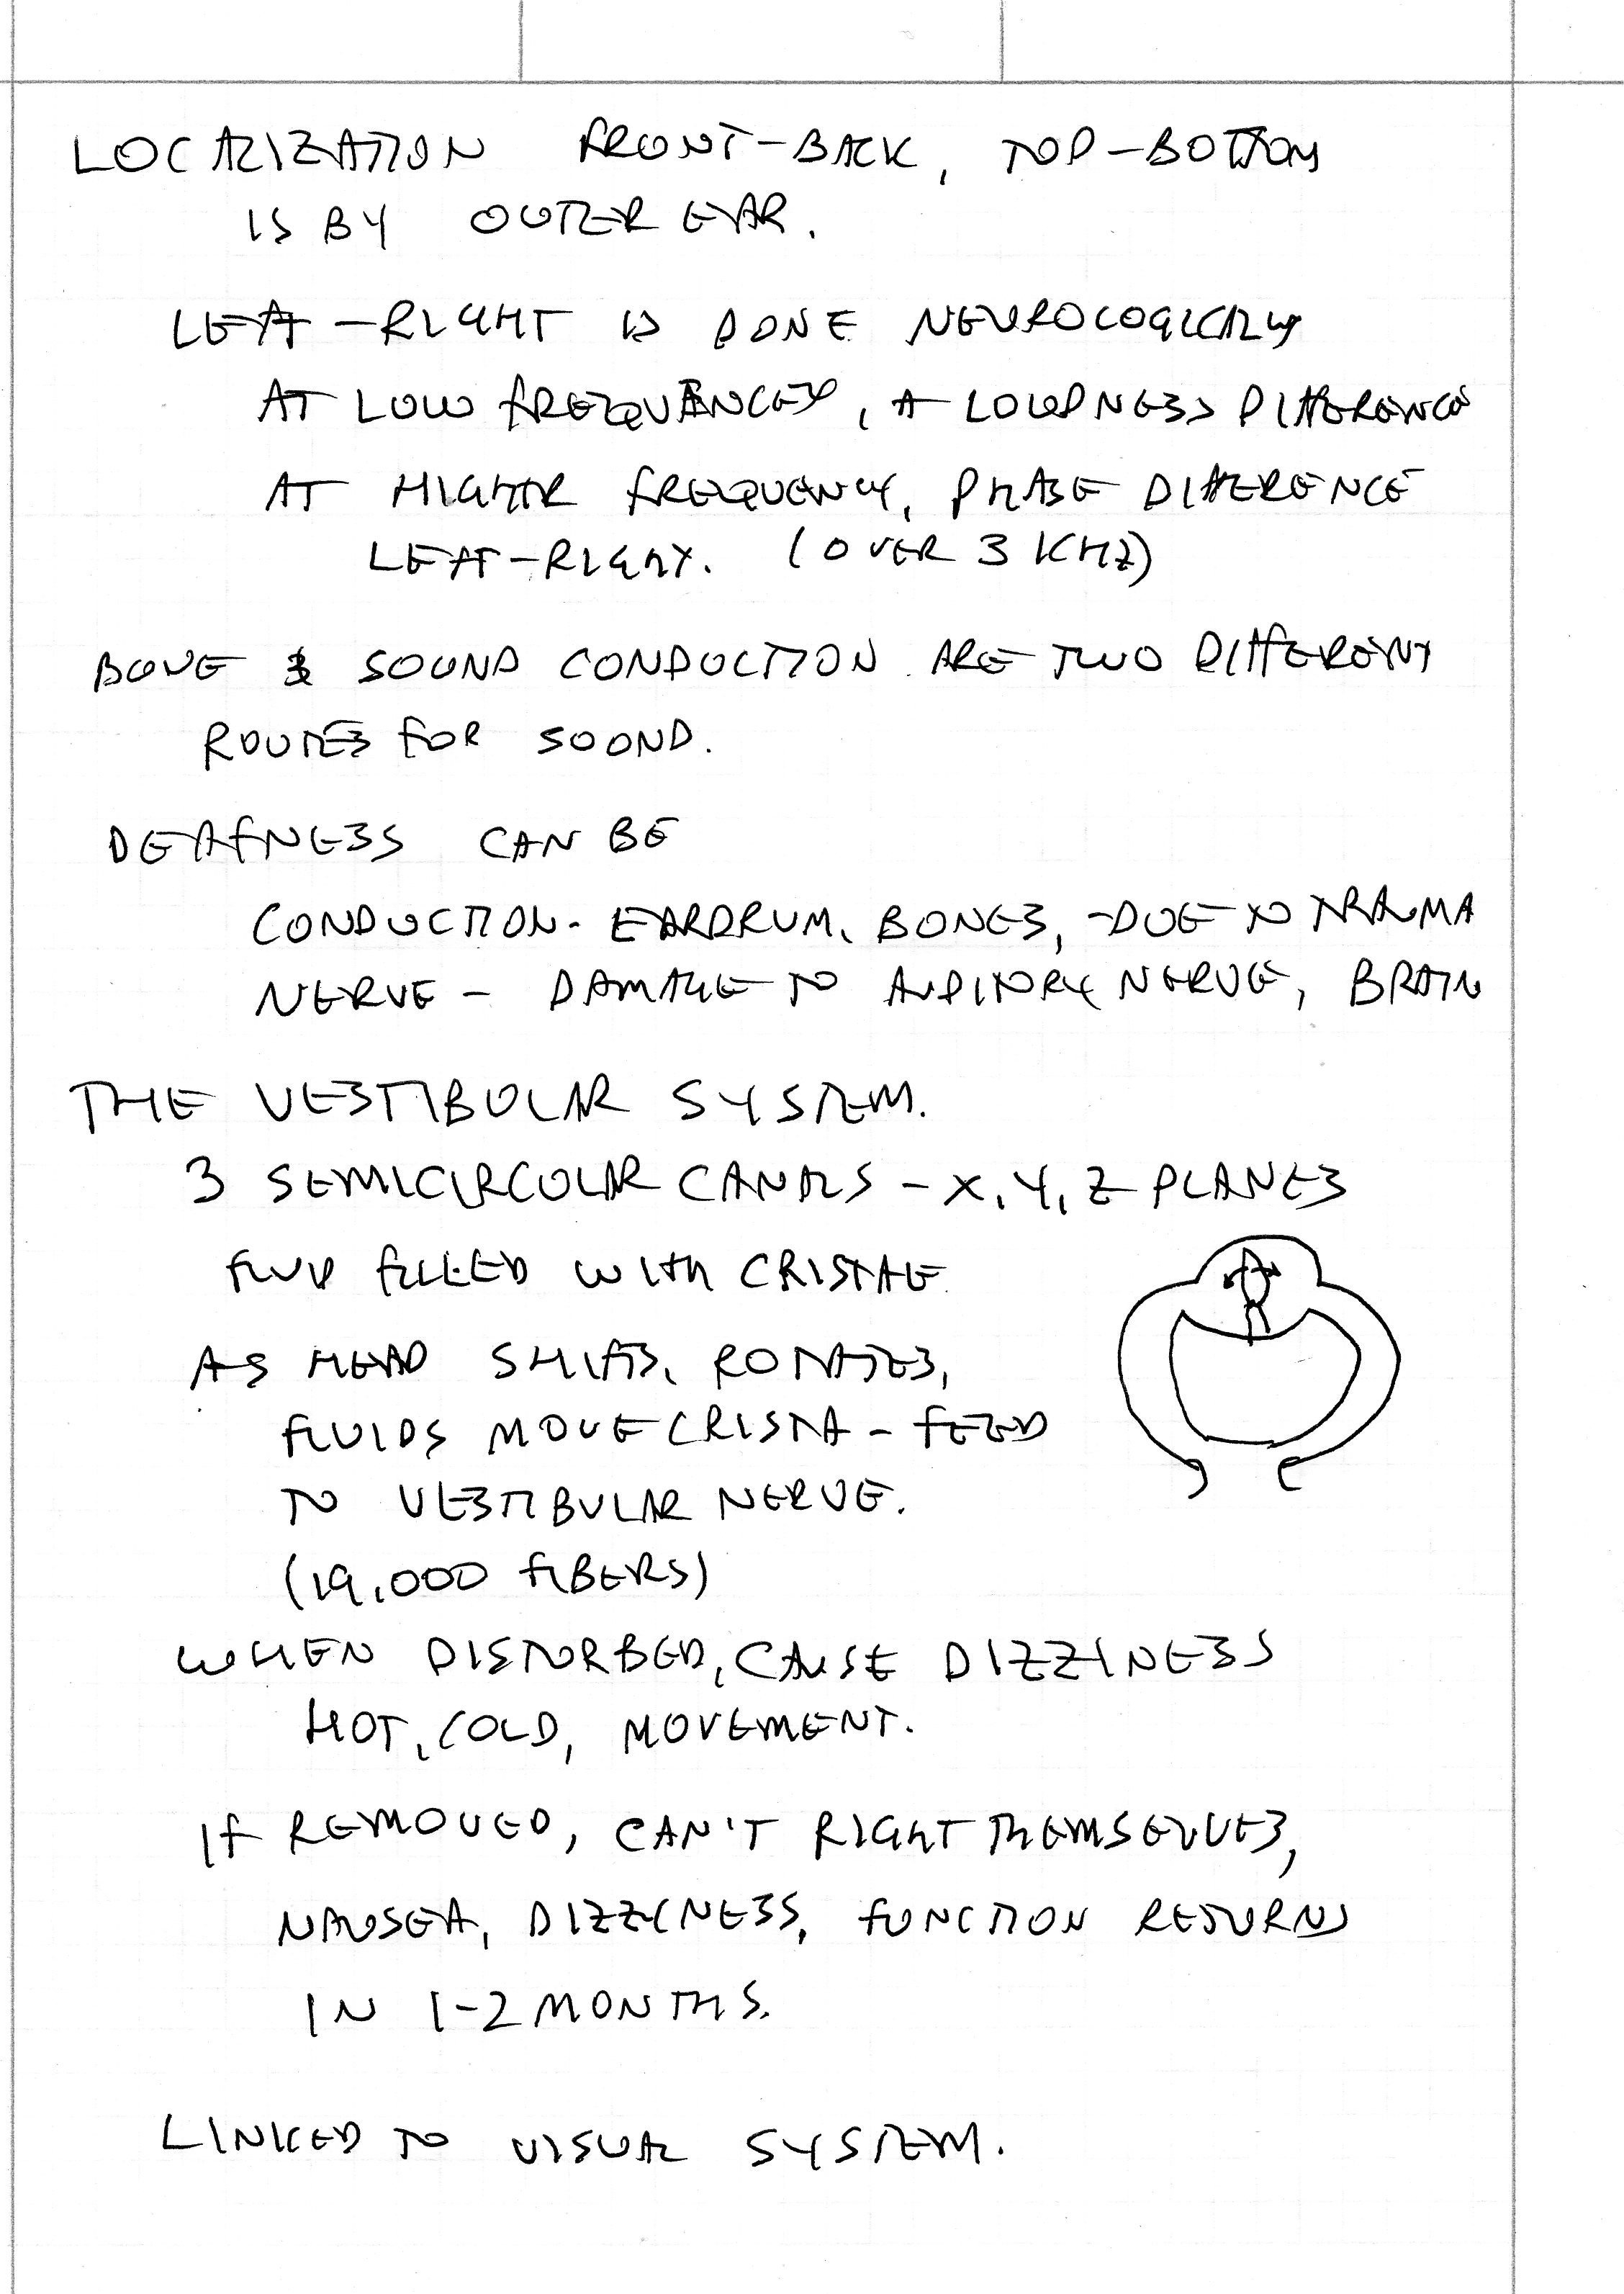 LOCALIZATION FRONT-BACK, TOP-BOTTOM
IS BY OUTER EAR.
LEFT-RIGHT IS DONE NEUROLOGICALLY
AT LOW FREQUENCY, A LOUDNESS DIFFERENCE
AT HIGHER FREQUENCY, PHASE DIFFERENCE
LEFT-RIGHT. (OVER 3 KHZ)
BONE & SOUND CONDUCTION ARE TWO DIFFERENT
ROUTES FOR SOUND.
DEAFNESS CAN BE
CONDUCTION- EARDRUM, BONES, -DUE TO TRAUMA
NERVE - DAMAGE TO AUDITORY NERVE, BRAIN
THE VESTIBULAR SYSTEM.
3 SEMICIRCULAR CANALS - X, Y, Z PLANES
FLUID FILLED WITH CRISTAE
AS HEAD SHIFTS, ROTATES,
FLUIDS MOVE CRISTA - FEED
TO VESTIBULAR NERVE.
(19,000 FIBERS)
WHEN DISTURBED, CAUSE DIZZINESS
HOT, COLD, MOVEMENT.
IF REMOVED, CAN'T RIGHT THEMSELVES,
NAUSEA, DIZZINESS, FUNCTION RETURNS
IN 1-2 MONTHS.
LINKED TO VISUAL SYSTEM.